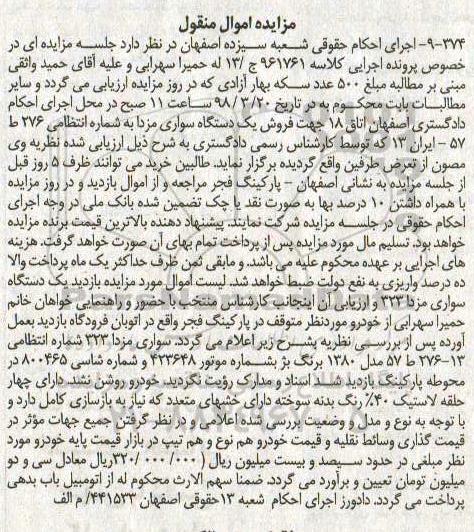 مزایده اموال منقول
۹-۳۷۴- اجرای احکام حقوقی شعبه سیزده اصفهان در نظر دارد جلسه مزایده ای در
خصوص پرونده اجرایی کلاسه ۹۶۱۷۶۱ ج /۱۳ له حمیرا سهرابی و علیه آقای حمید واثقی
مبنی بر مطالبه مبلغ ۵۰۰ عدد سکه بهار آزادی که در روز مزایده ارزیابی می گردد و سایر
مطالبات بابت محکوم به در تاریخ ۹۸/۳/۲۰ ساعت ۱۱ صبح در محل اجرای احکام
دادگستری اصفهان اتاق ۱۸ جهت فروش یک دستگاه سواری مزدا به شماره انتظامی ۲۷۶ ط
۵۷ – ایران ۱۳ که توسط کارشناس رسمی دادگستری به شرح ذیل ارزیابی شده نظریه وی
مصون از تعرض طرفین واقع گردیده برگزار نماید. طالبین خرید می توانند ظرف ۵ روز قبل
از جلسه مزایده به نشانی اصفهان – پارکینگ فجر مراجعه و از اموال بازدید و در روز مزایده
با همراه داشتن ۱۰ درصد بها به صورت نقد یا چک تضمین شده بانک ملی در وجه اجرای
احکام حقوقی در جلسه مزایده شرکت نمایند. پیشنهاد دهنده بالاترین قیمت برنده مزایده
خواهد بود. تسلیم مال مورد مزایده پس از پرداخت تمام بهای آن صورت خواهد گرفت. هزینه
های اجرایی بر عهده محکوم علیه می باشد. و مابقی ثمن ظرف حداکثر یک ماه پرداخت والا
ده درصد واریزی به نفع دولت ضبط خواهد شد. لیست اموال مورد مزایده بازدید یک دستگاه
سواری مزدا ۳۲۳ و ارزیابی آن اینجانب کارشناس منتخب با حضور و راهنمایی خواهان خانم
حمیرا سهرابی از خودرو موردنظر متوقف در پارکینگ فجر واقع در اتوبان فرودگاه بازدید بعمل
آورده پس از بررسی نظریه بشرح زیر اعلام می گردد. سواری مزدا ۳۲۳ شماره انتظامی
۱۳-۲۷۶ ط ۵۷ مدل ۱۳۸۰ برنگ بژ بشماره موتور ۴۲۳۶۴۸ و شماره شاسی ۸۰۰۴۶۵ در
محوطه پارکینگ بازدید شد اسناد و مدارک رؤیت نگردید. خودرو روشن نشد. دارای چهار
حلقه لاستیک ۴۰٪ رنگ بدنه سوخته دارای خشهای متعدد که نیاز به بازسازی کامل دارد و
با توجه به نوع و مدل و وضعیت بررسی شده اعلامی و در نظر گرفتن جمیع جهات مؤثر در
قیمت گذاری وسائط نقلیه و قیمت خودرو هم نوع و هم تیپ در بازار قیمت پایه خودرو مورد
نظر مبلغی در حدود سیصد و بیست میلیون ریال (۳۲۰/۰۰۰/۰۰۰ریال معادل سی و دو
میلیون تومان تعیین و برآورد می گردد. ضمنا سهم الارث محکوم له از اتومبیل باب بدهی
پرداخت می گردد. دادورز اجرای احکام شعبه ۱۳حقوقی اصفهان ۴۴۱۵۳۳/م الف